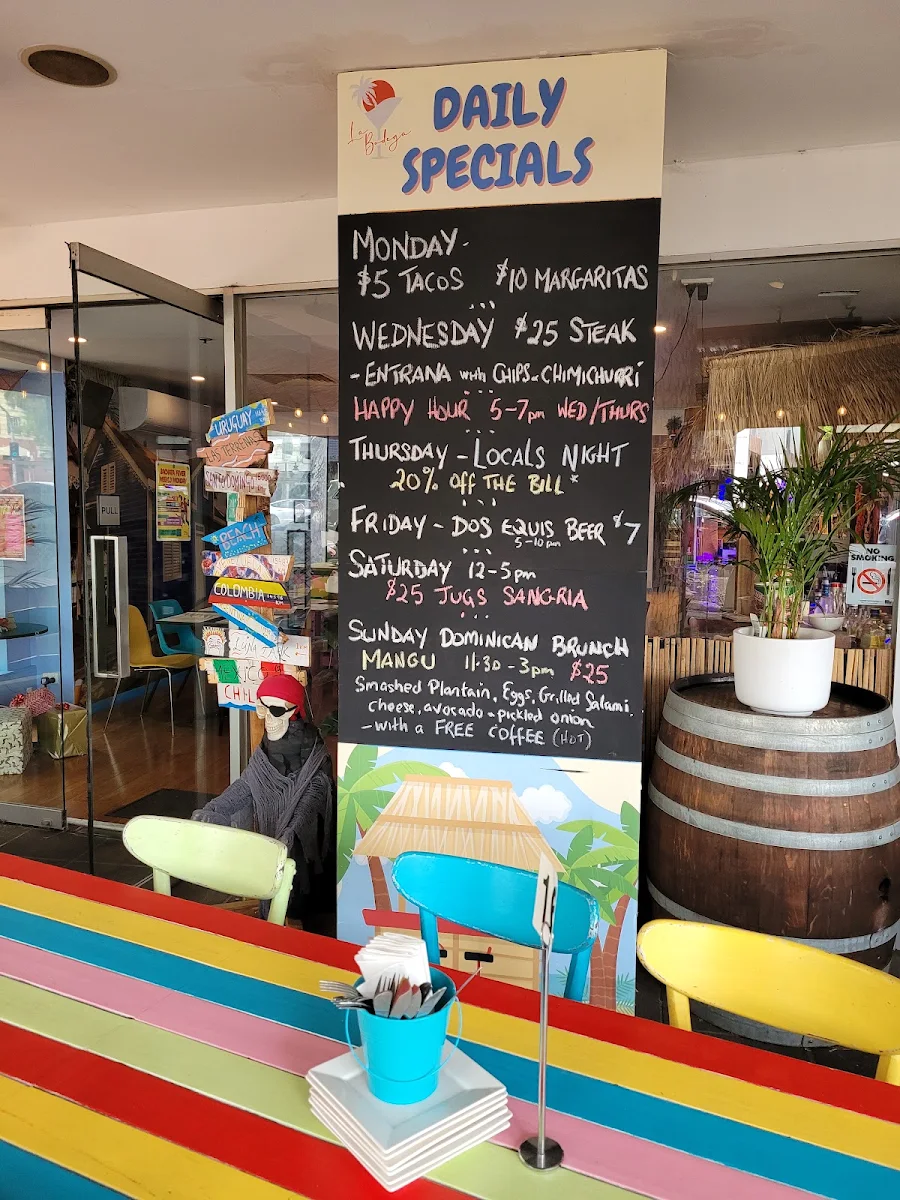 La Bodega
DAILY
SPECIALS
MONDAY-
$5 TACOS $10 MARGARITAS
WEDNESDAY $25 STEAK
- ENTRANA with CHIPS & CHIMICHURRI
HAPPY HOUR 5-7pm WED/THURS
THURSDAY - LOCALS NIGHT
20% OFF THE BILL*
FRIDAY - DOS EQUIS BEER $7
5-10pm
SATURDAY 12-5pm
$25 JUGS SANGRIA
SUNDAY DOMINICAN BRUNCH
MANGU 11:30 - 3pm $25
Smashed Plantain, Eggs, Grilled Salami,
cheese, avocado - pickled onion
- with a FREE COFFEE (HOT)
URUGUAY
LAS TERRENAS
BEACH
COLOMBIA
LUNA PARK
CHILE
PULL
NO
SMOKING